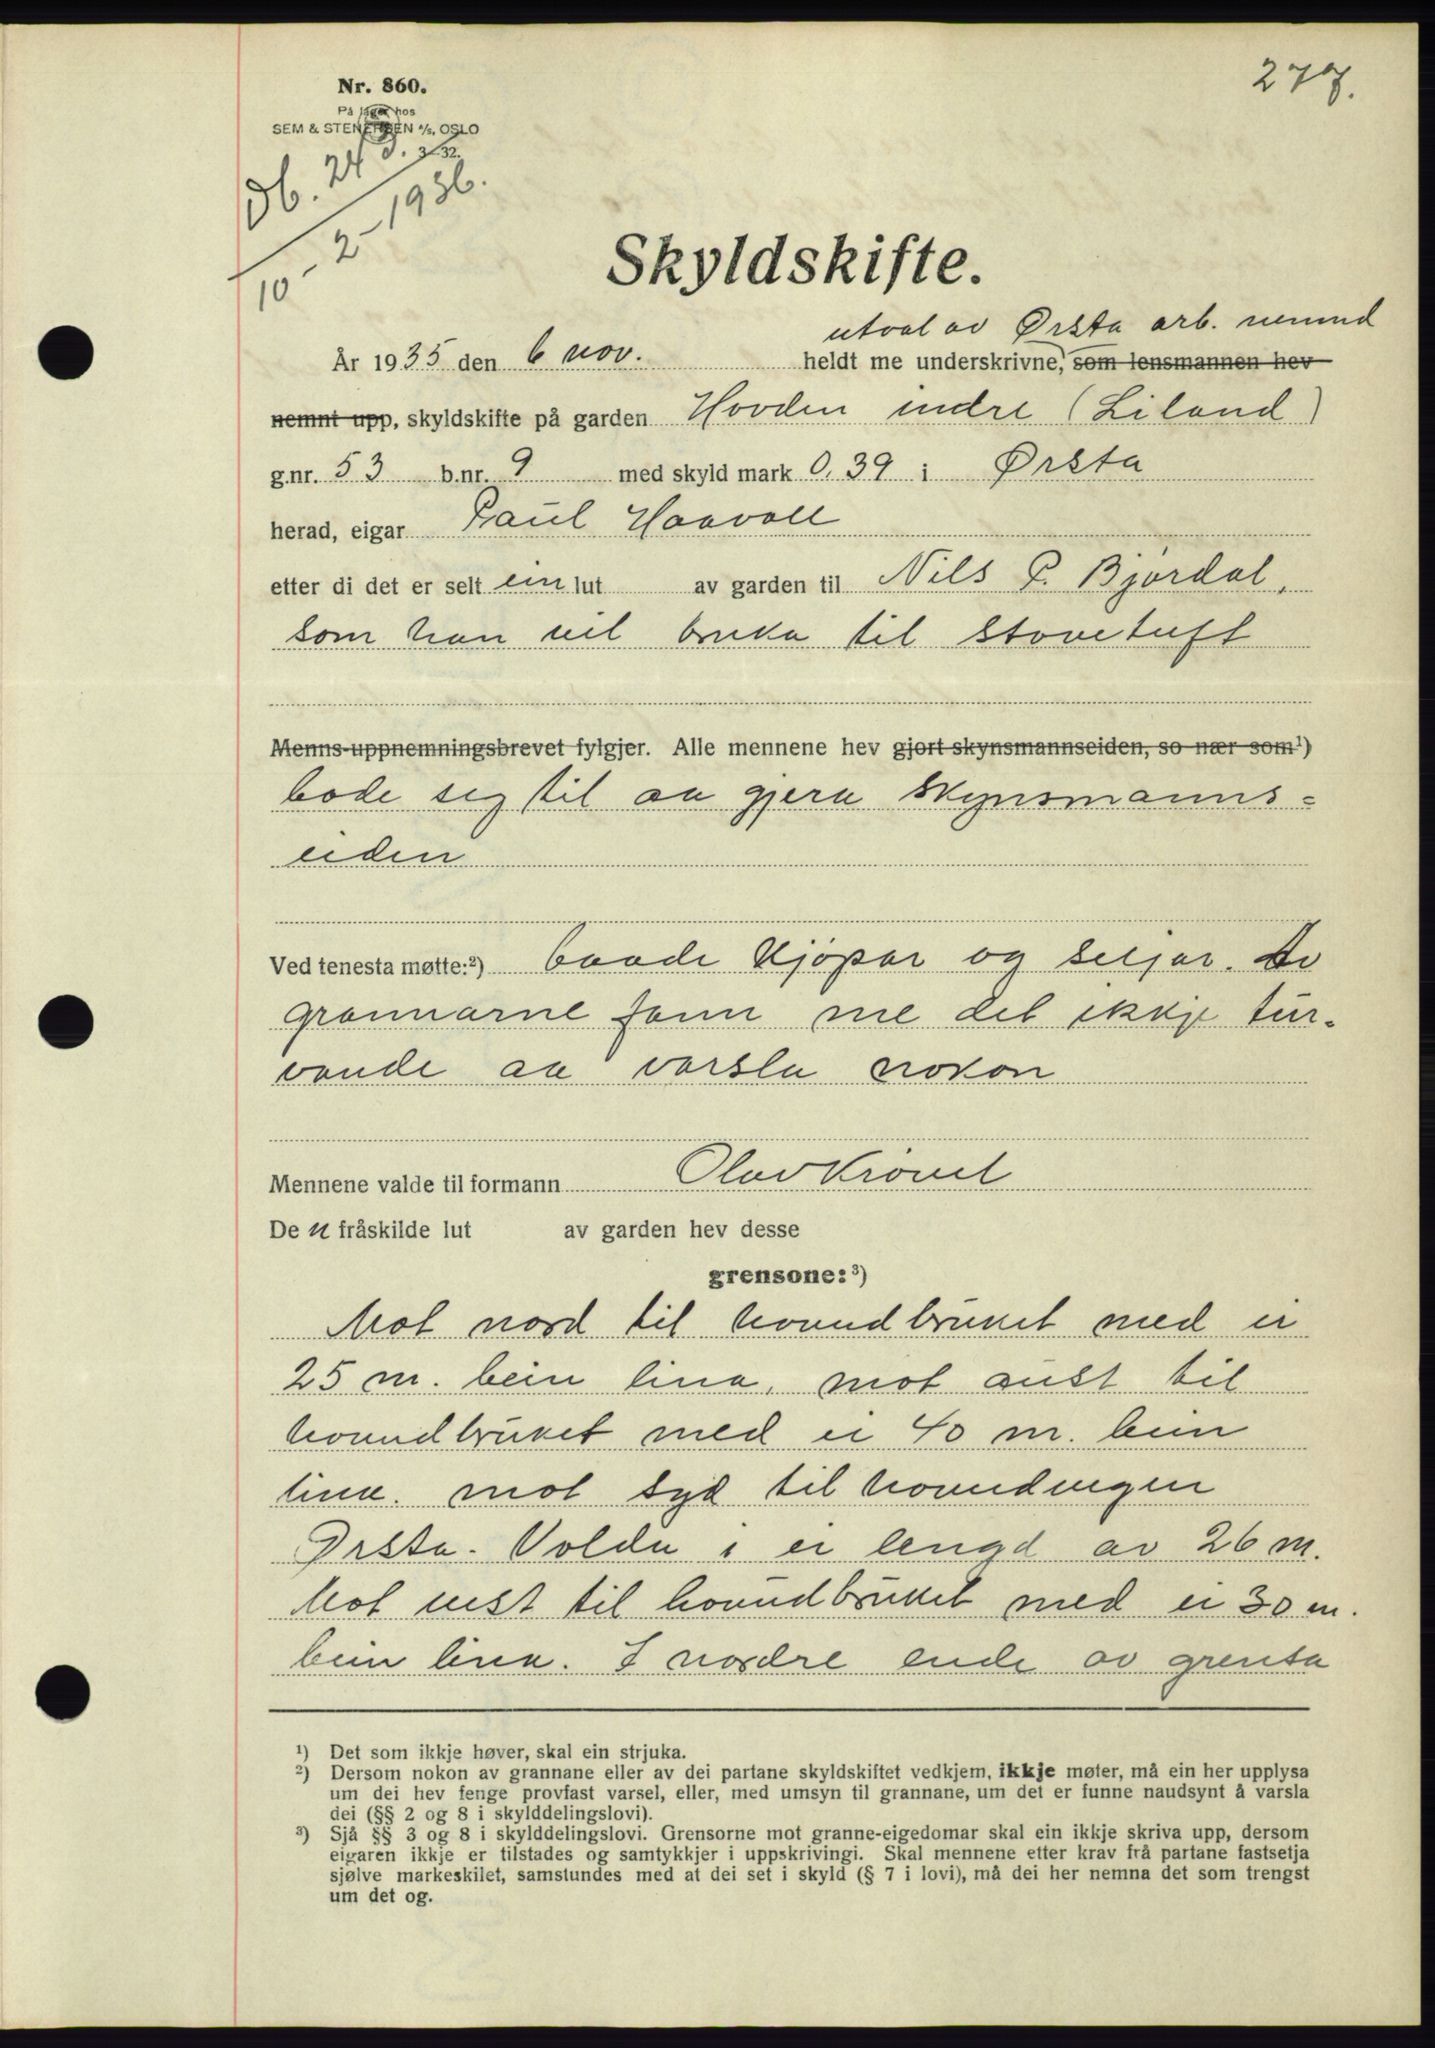 277.
Nr. 860.
På lager hos
SEM & STENERSEN A/S, OSLO
3-32.
Db. 243.
10-2-1936.
Skyldskifte.
utval av Ørsta arb. nemnd
År 1935 den 6 nov. heldt me underskrivne, som lensmannen hev
nemnt upp, skyldskifte på garden Hovden indre (Liland)
g.nr. 53 b.nr. 9 med skyld mark 0,39 i Ørsta
herad, eigar Paul Haavoll
etter di det er selt ein lut av garden til Nils P. Bjørdal,
som han vil bruka til stovetuft
Menns-uppnemningsbrevet fylgjer. Alle mennene hev gjort skynsmannseiden, so nær som¹)
bode seg til aa gjera skynsmanns=
eiden
Ved tenesta møtte:²) baade kjøpar og seljar. Av
grannarne fann me det ikkje tur-
vande aa varsla nokon
Mennene valde til formann Olav Krøvel
De n fråskilde lut av garden hev desse
grensone:³)
Mot nord til hovudbruket med ei
25 m. bein lina, mot aust til
hovudbruket med ei 40 m. bein
lina. mot syd til hovudvegen
Ørsta- Volda i ei lengd av 26 m.
Mot vest til hovudbruket med ei 30 m.
bein lina. I nordre ende av grensa
¹) Det som ikkje høver, skal ein strjuka.
²) Dersom nokon av grannane eller av dei partane skyldskiftet vedkjem, ikkje møter, må ein her upplysa
um dei hev fenge provfast varsel, eller, med umsyn til grannane, um det er funne naudsynt å varsla
dei (§§ 2 og 8 i skylddelingslovi).
³) Sjå §§ 3 og 8 i skylddelingslovi. Grensorne mot granne-eigedomar skal ein ikkje skriva upp, dersom
eigaren ikkje er tilstades og samtykkjer i uppskrivingi. Skal mennene etter krav frå partane fastsetja
sjølve markeskilet, samstundes med at dei set i skyld (§ 7 i lovi), må dei her nemna det som trengst
um det og.